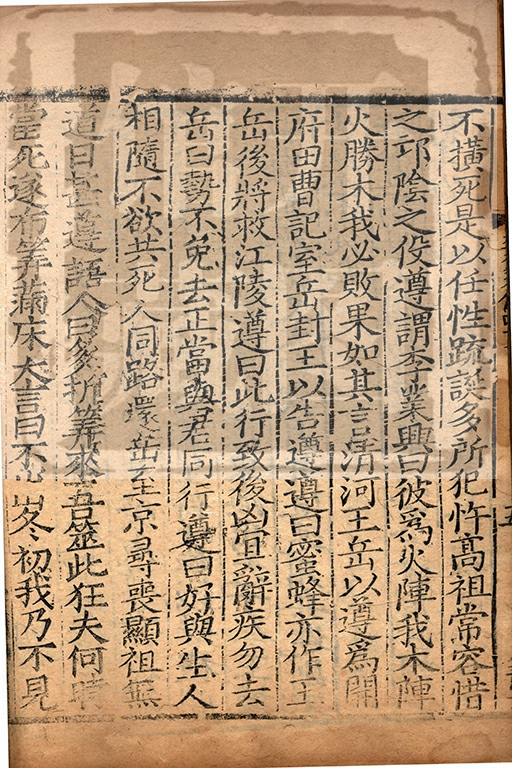 不橫死是以任性疏誕多所犯忤高祖常容惜
之邙陰之役遵謂李業興曰彼為火陣我木陣
火勝木我必敗果如其言清河王岳以遵為開
府田曹記室岳封王以告遵遵曰蜜蜂亦作王
岳後將救江陵遵曰此行致後凶宜辭疾勿去
岳曰勢不免去正當與君同行遵曰好與生人
相隨不欲共死人同路還岳至京尋喪顯祖無
道日甚遵語人曰多折筭來吾筮此狂夫何時
當死遂布筭滿床大言曰不出冬初我乃不見